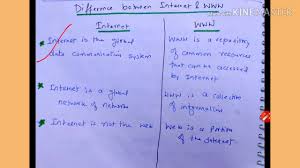 Difference between Internet & WWW
MADE WITH
KINEMASTER
Internet
Internet is the global
data communication system
Internet is a global
network of networks
Internet is not the web
WWW
WWW is a repository
of common resources
that can be accessed
by Internet
WWW is a collection
of information
Web is a portion
of the Internet